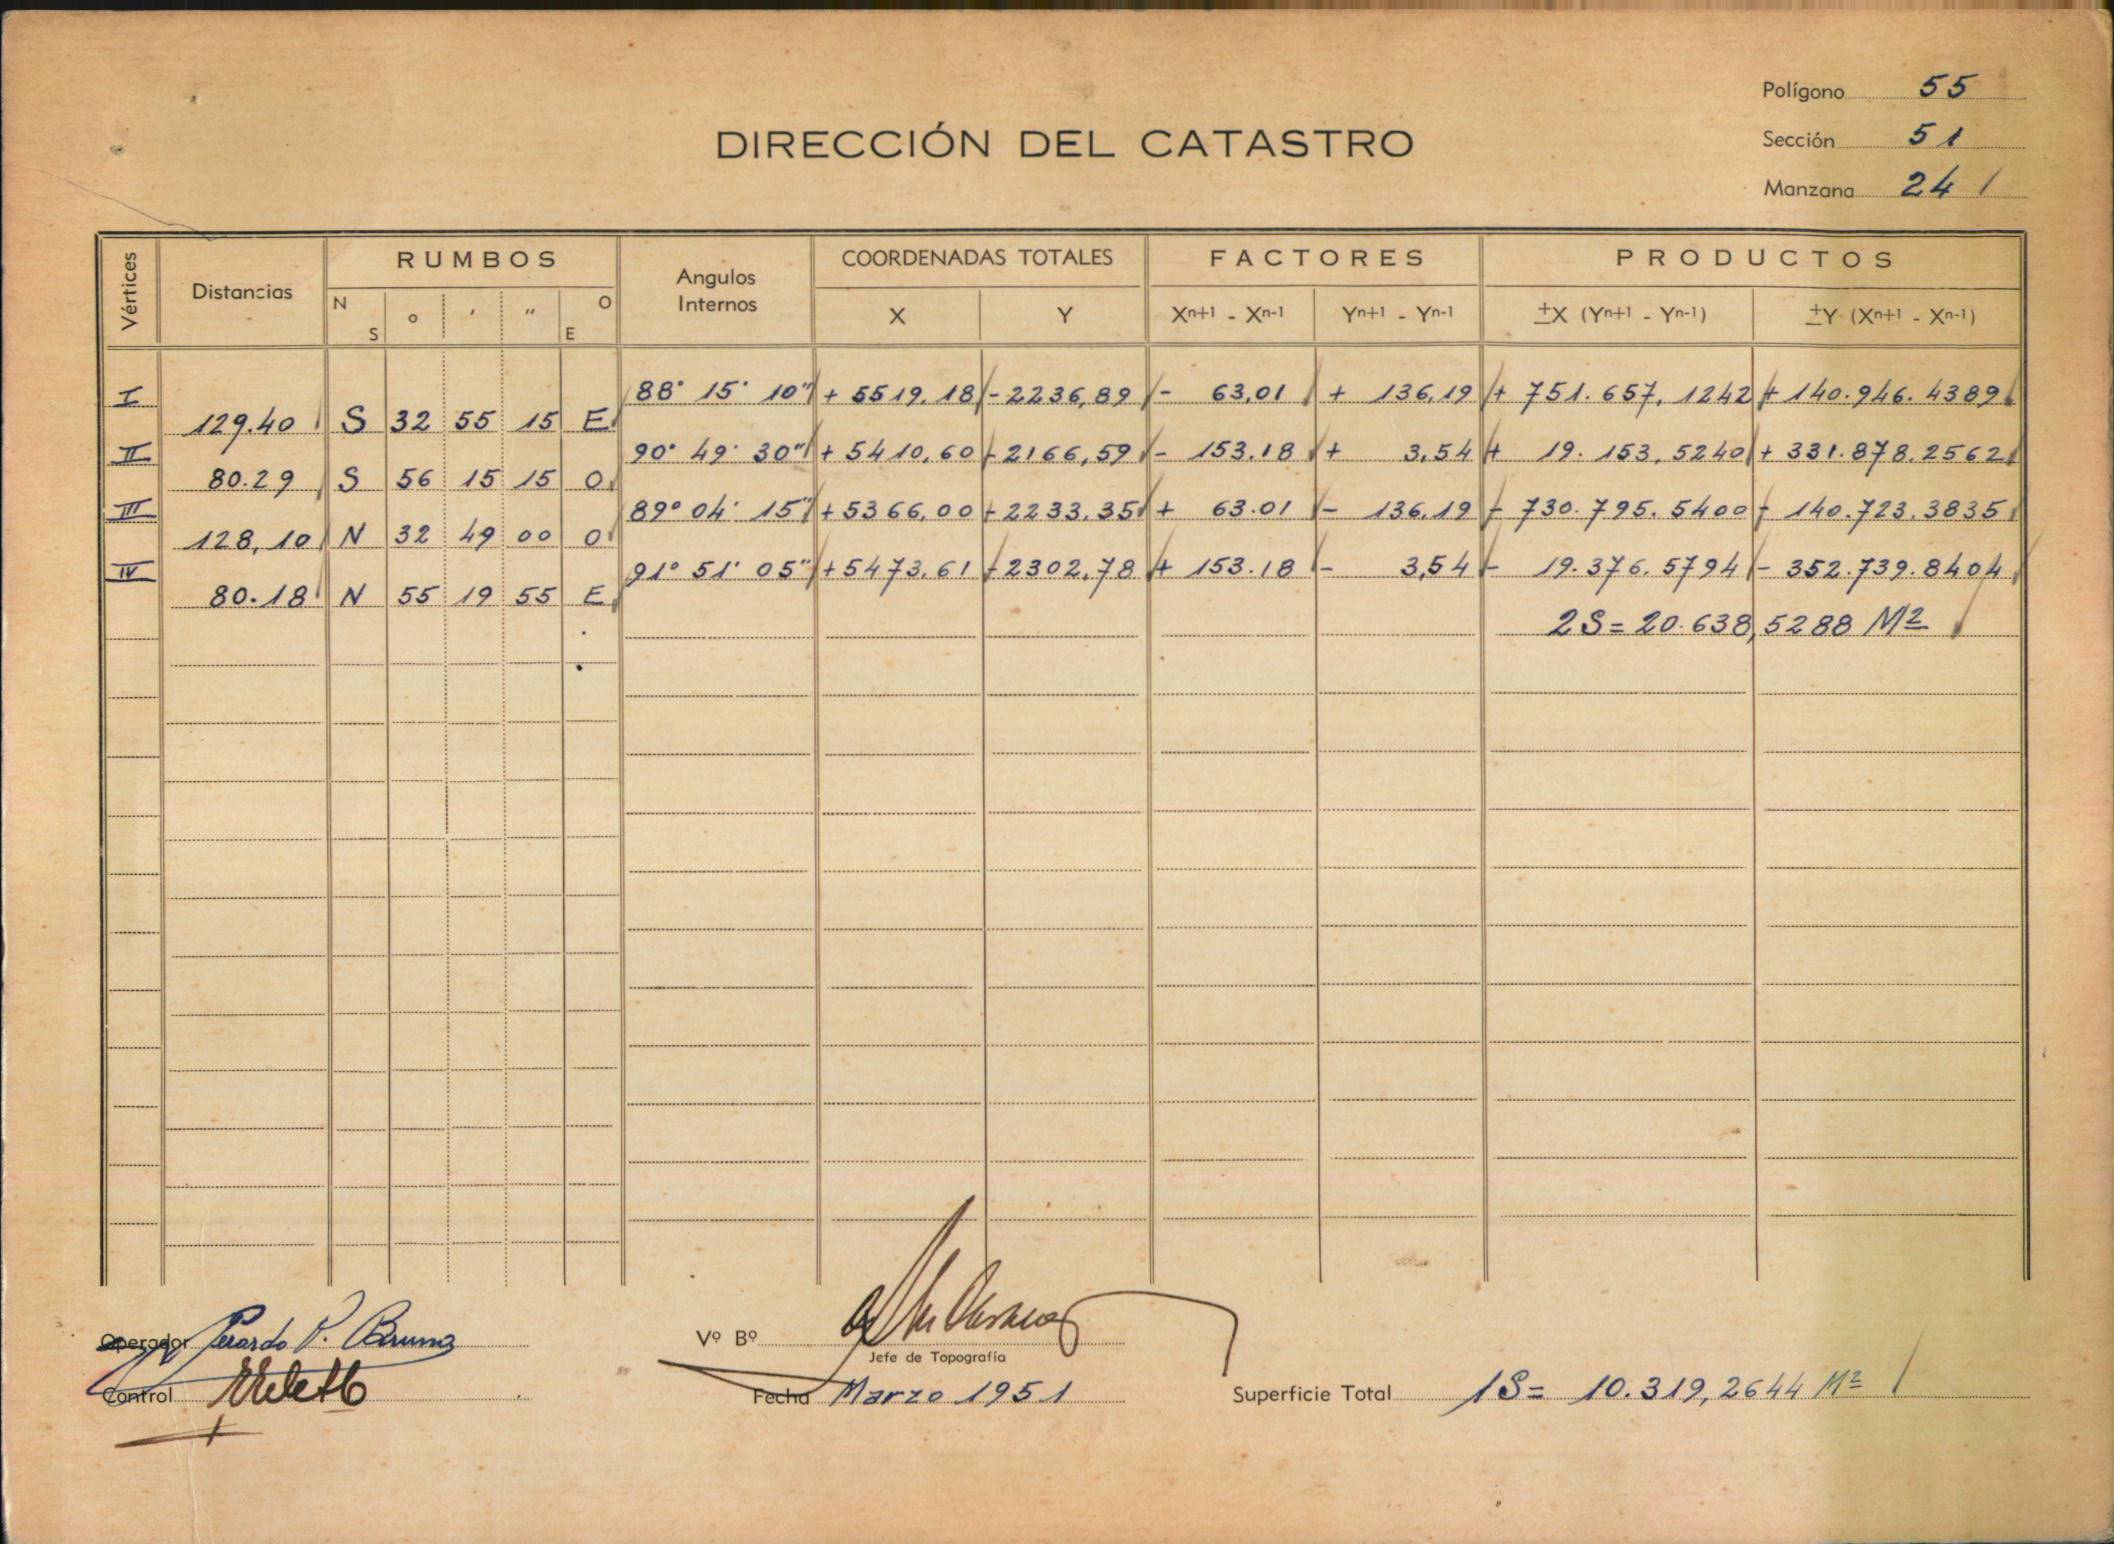 Polígono 55
DIRECCIÓN DEL CATASTRO
Sección 51
Manzana 24
Vértices Distancias RUMBOS Angulos Internos COORDENADAS TOTALES FACTORES PRODUCTOS
N S ° ' " O E X Y Xn+1 - Xn-1 Yn+1 - Yn-1 ±X (Yn+1 - Yn-1) ±Y (Xn+1 - Xn-1)
I 88° 15' 10" + 5519,18 - 2236,89 - 63,01 + 136,19 + 751.657,1242 + 140.946.4389
129.40 S 32 55 15 E
II 90° 49' 30" + 5410,60 - 2166,59 - 153.18 + 3,54 + 19.153,5240 + 331.878.2562
80.29 S 56 15 15 O
III 89° 04' 15" + 5366,00 - 2233,35 + 63.01 - 136,19 - 730.795.5400 - 140.723.3835
128,10 N 32 49 00 O
IV 91° 51' 05" + 5473,61 - 2302,78 + 153.18 - 3,54 - 19.376.5794 - 352.739.8404
80.18 N 55 19 55 E
2S = 20.638,5288 M2
Operador Gerardo P. Bruno
Vº Bº
Jefe de Topografía
Control
Fecha Marzo 1951
Superficie Total 1S = 10.319,2644 M2